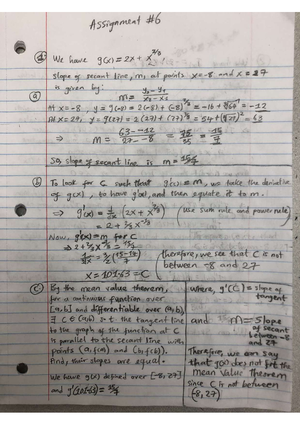 Assignment #6
We have g(x) = 2x + x^2/3
slope of secant line, m, at points x=-8 and x=27
is given by:
(a) m = y₂-y₁/x₂-x₁
At x=-8, y = g(-8) = 2(-8) + (-8)^2/3 = -16 + ∛64 = -12
At x=27, y = g(27) = 2(27) + (27)^2/3 = 54 + (∛27)² = 63
⇒ m = 63--12/27--8 = 75/35 = 15/7
So slope of secant line is m = 15/7
(b) To look for c such that g'(c) = m, we take the derivative
of g(x), to have g'(x), and then equate it to m.
⇒ g'(x) = d/dx (2x + x^2/3) (use sum rule, and power rule)
= 2 + 2/3 x^-1/3
Now, g'(x) = m for c
(therefore, we see that C is not
between -8 and 27
(c) By the mean value theorem,
for a continuous function over
[a,b] and differentiable over (a,b)
∃ c ∈ (a,b) s.t the tangent line
to the graph of the function at C
is parallel to the secant line with
points (a, f(a)) and (b, f(b)).
their slopes are equal.
We have g(x) defined over [-8,27]
and
where, g'(c) = slope of
tangent
and m = slope
of secant
between -8
and 27
Therefore, we can say
that g(x) does not fit the
mean Value Theorem
since C is not between
(-8, 27)